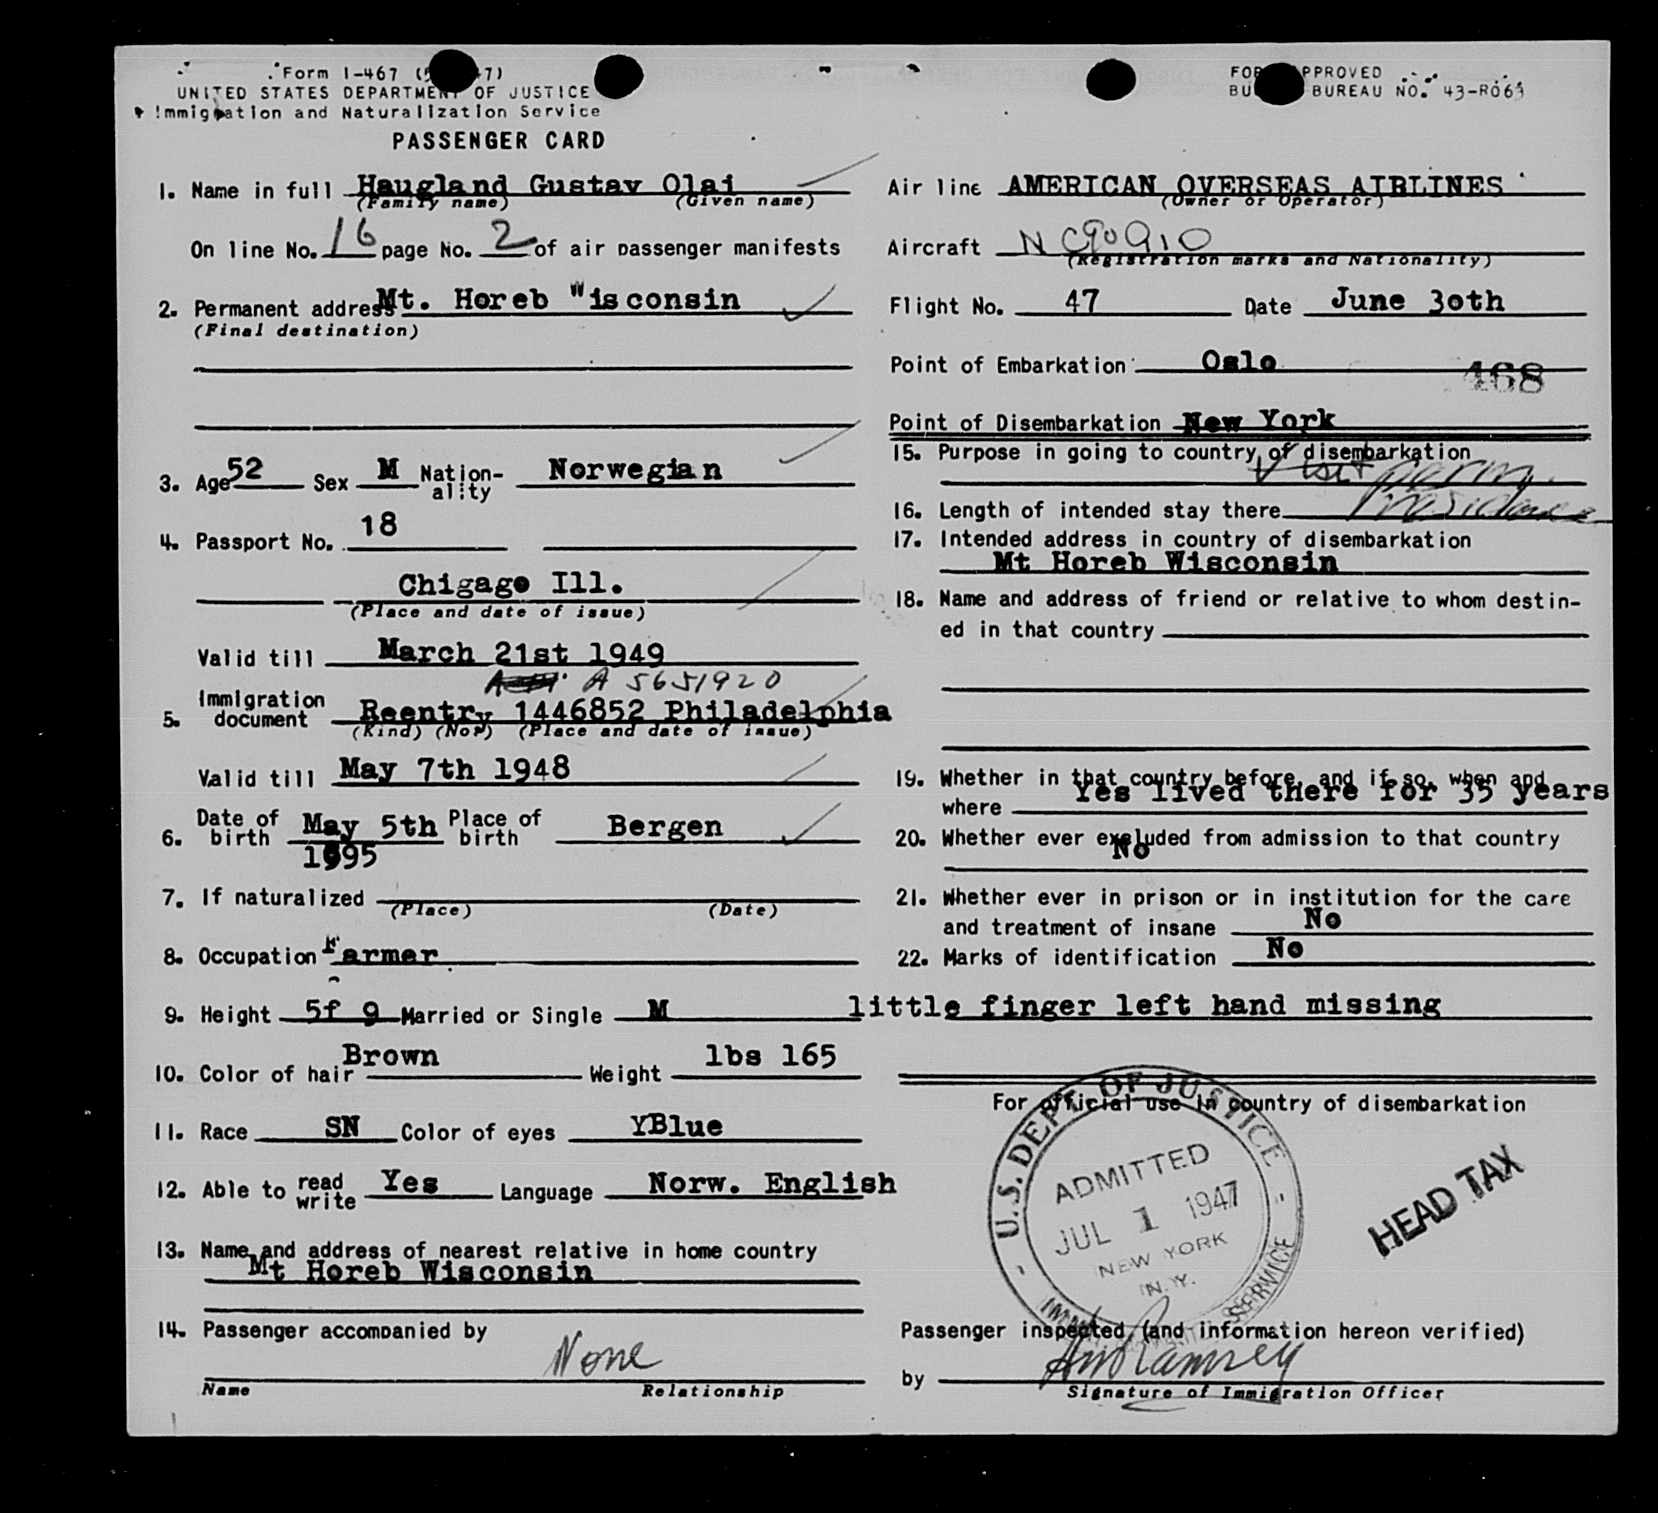 Form I-467
UNITED STATES DEPARTMENT OF JUSTICE
Immigration and Naturalization Service
PASSENGER CARD
1. Name in full Haugland Gustav Olai
(Family name) (Given name)
On line No. 16 page No. 2 of air passenger manifests
2. Permanent address Mt. Horeb Wisconsin
(Final destination)
3. Age 52 Sex M Nation-ality Norwegian
4. Passport No. 18
Chigago Ill.
(Place and date of issue)
Valid till March 21st 1949
A 5651920
5. Immigration document Reentry 1446852 Philadelphia
(Kind) (No.) (Place and date of issue)
Valid till May 7th 1948
6. Date of birth May 5th 1895 Place of birth Bergen
7. If naturalized
(Place) (Date)
8. Occupation Farmer
9. Height 5f 9 Married or Single M
10. Color of hair Brown Weight lbs 165
11. Race SN Color of eyes YBlue
12. Able to read write Yes Language Norw. English
13. Name and address of nearest relative in home country
Mt Horeb Wisconsin
14. Passenger accompanied by
None
Name Relationship
FOR APPROVED
BUREAU NO. 43-R063
Air line AMERICAN OVERSEAS AIRLINES
(Owner or Operator)
Aircraft NC90910
(Registration marks and Nationality)
Flight No. 47 Date June 30th
Point of Embarkation Oslo
468
Point of Disembarkation New York
15. Purpose in going to country of disembarkation
Visit perm.
16. Length of intended stay there residence
17. Intended address in country of disembarkation
Mt Horeb Wisconsin
18. Name and address of friend or relative to whom destin-
ed in that country
19. Whether in that country before, and if so, when and
where Yes lived there for 35 years
20. Whether ever excluded from admission to that country
No
21. Whether ever in prison or in institution for the care
and treatment of insane No
22. Marks of identification No
little finger left hand missing
For official use in country of disembarkation
U.S. DEPT. OF JUSTICE
ADMITTED
JUL 1 1947
NEW YORK
N.Y.
SERVICE
HEAD TAX
Passenger inspected (and information hereon verified)
by
Signature of Immigration Officer